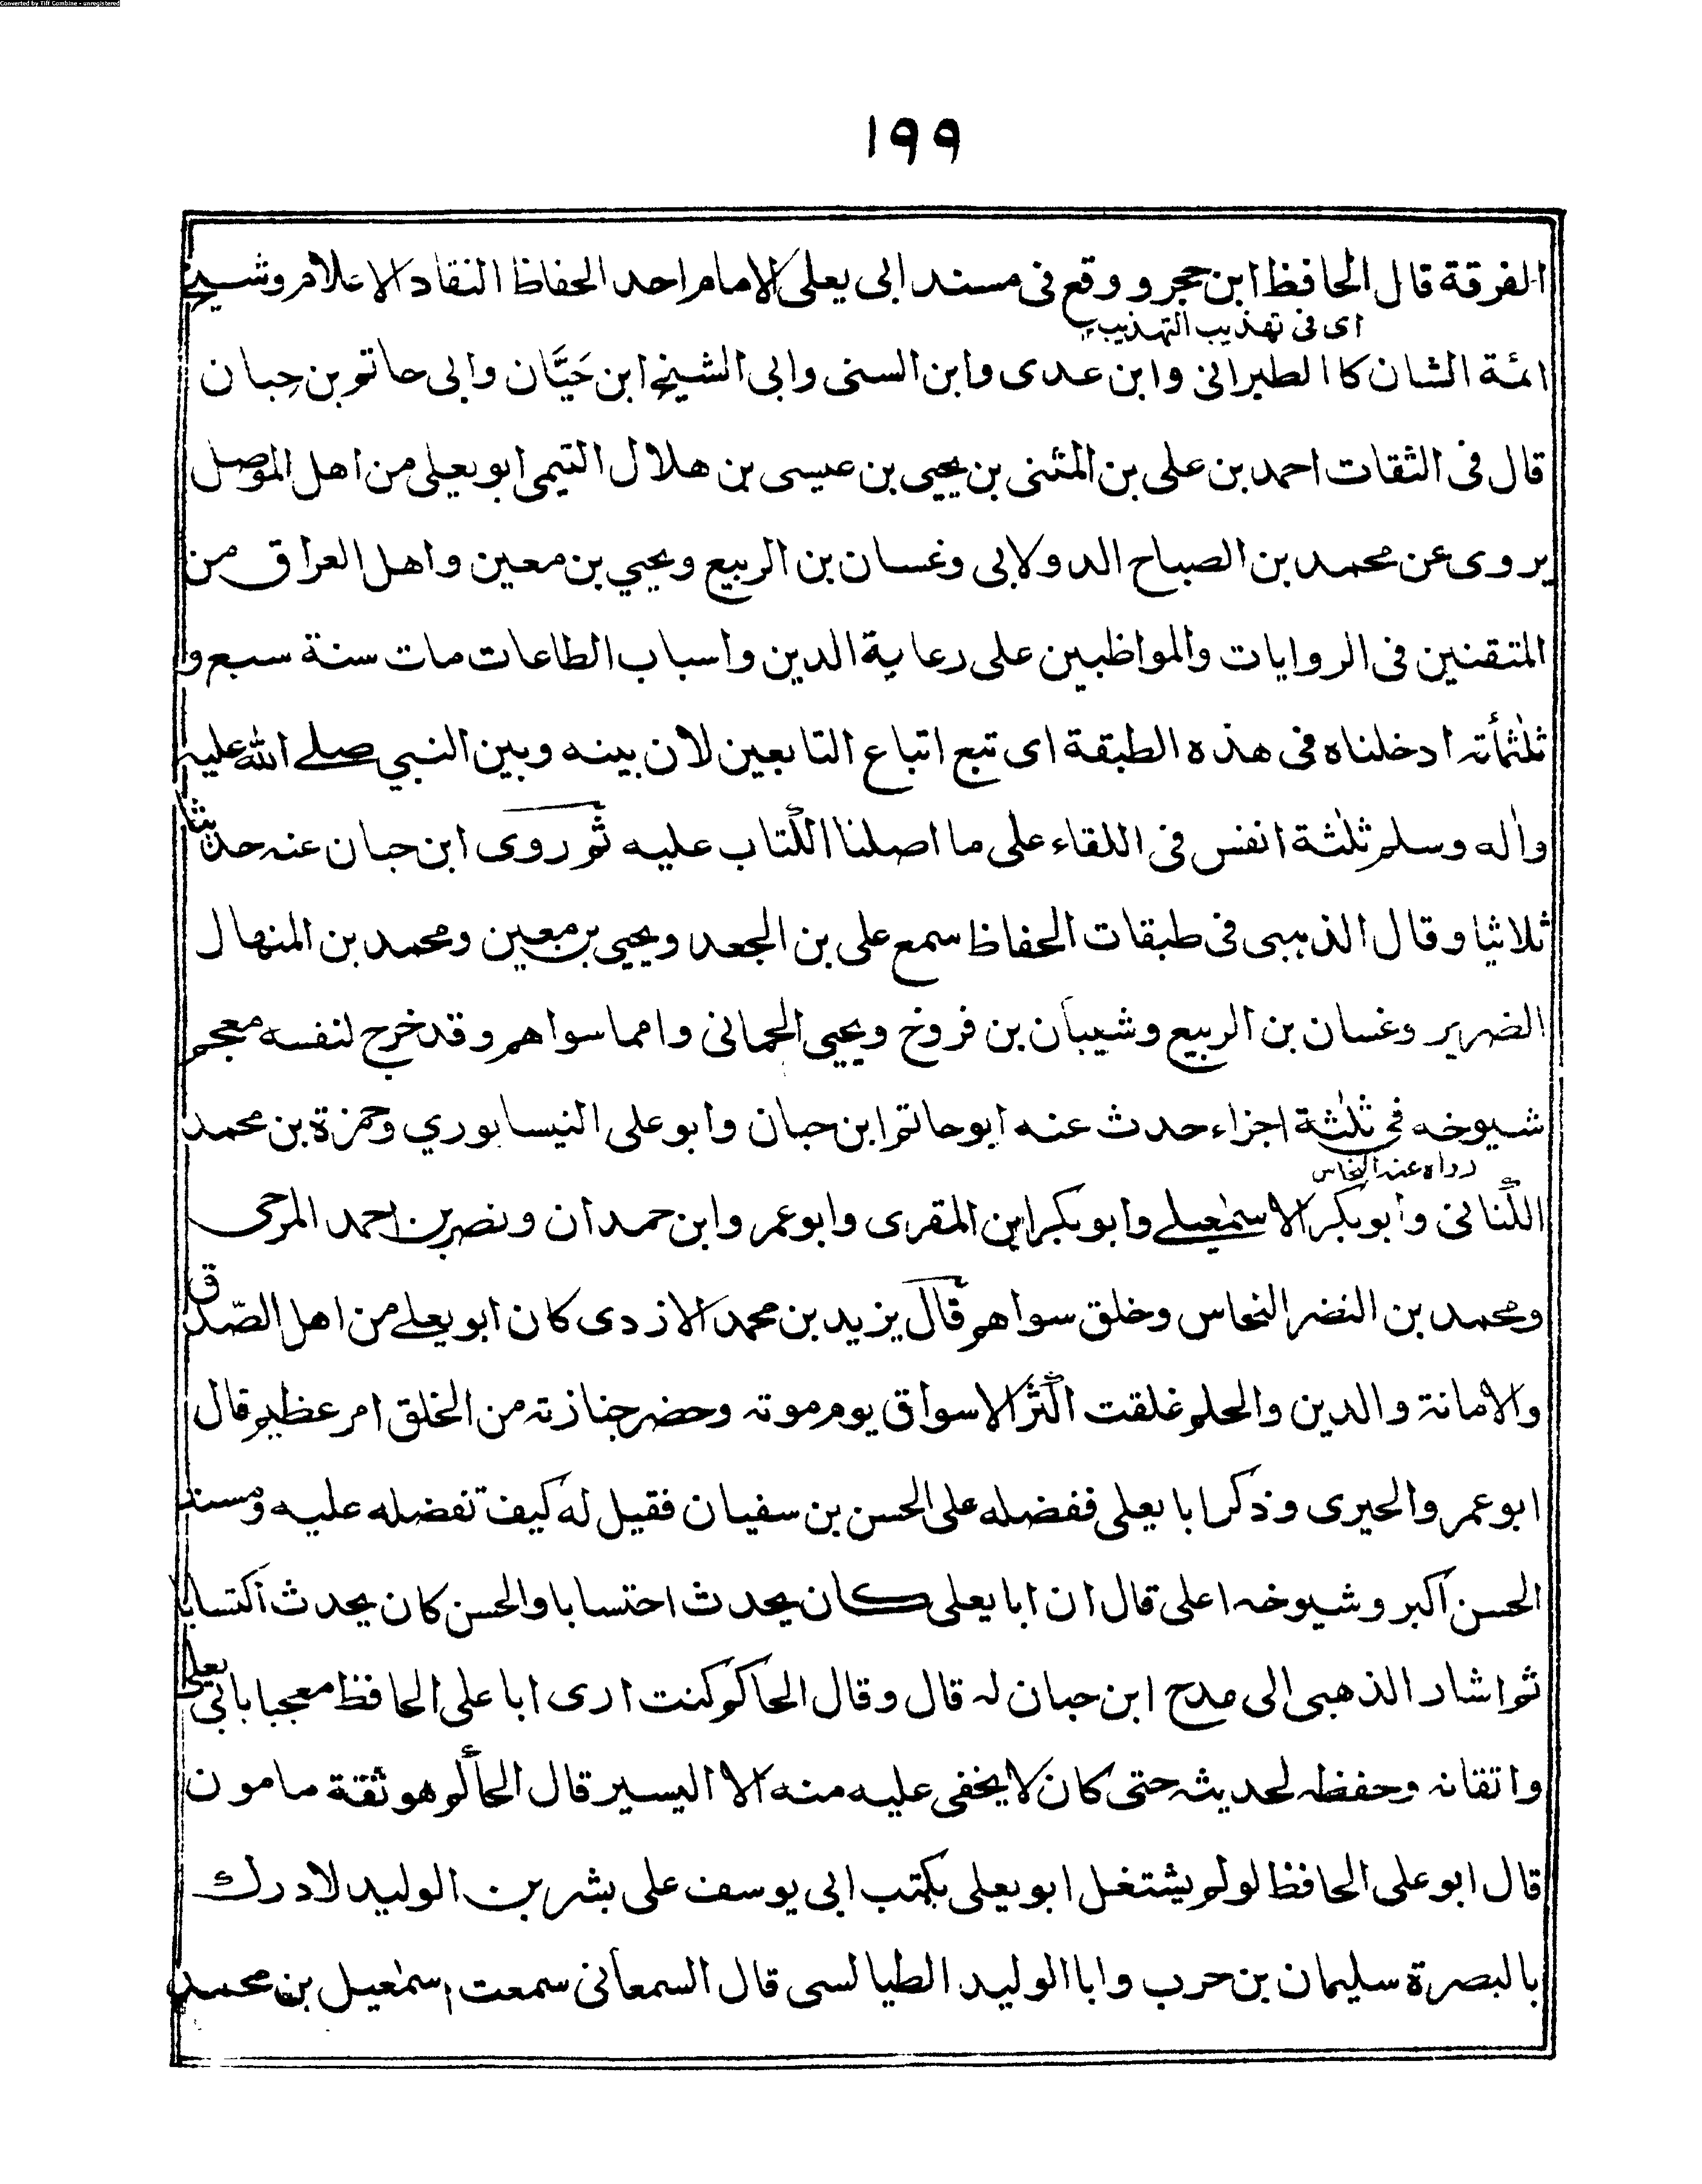 Converted by Tiff Combine - unregistered
١٩٩
الفرقة قال الحافظ ابن حجر ووقع فى مسند ابى يعلى الامام احد الحفاظ النقاد الاعلام وشيخ
اى فى تهذيب التهذيب
ائمة الشان كالطبرانى وابن عدى وابن السنى وابى الشيخ ابن حَيَّان وابى حاتم بن حِبان
قال فى الثقات احمد بن على بن المثنى بن يحيى بن عيسى بن هلال التيمى ابو يعلى من اهل الموصل
يروى عن محمد بن الصباح الدولابى وغسان بن الربيع ويحيي بن معين واهل العراق من
المتقنين فى الروايات والمواظبين على رعاية الدين واسباب الطاعات مات سنة سبع و
ثلٰثمأته ادخلناه فى هذه الطبقة اى تبع اتباع التابعين لان بينه وبين النبي صلے الله عليه
واٰله وسلم ثلٰثة انفس فى اللقاء على ما اصلنا الكتاب عليه ثم روى ابن حبان عنه حديثا
ثلاثيا وقال الذهبى فى طبقات الحفاظ سمع على بن الجعد ويحيي بن معين ومحمد بن المنهال
الضرير وغسان بن الربيع وشيبان بن فروخ ويحيى الحمانى وامما سواهم وقد خرج لنفسه معجم
شيوخه فى ثلٰثة اجزاء حدث عنه ابو حاتم ابن حبان وابو على النيسابوري وحمزة بن محمد
رواه عنه النحاس
الكنانى وابو بكر الاسمٰعيلے وابو بكر ابن المقرى وابو عمر وابن حمدان ونصر بن احمد المرجى
ومحمد بن النضر النحاس وخلق سواهم قال يزيد بن محمد الازدى كان ابو يعلے من اهل الصّدق
والامانة والدين والحلم غلقت اكثر الاسواق يوم موته وحضر جنازته من الخلق امر عظيم قال
ابو عمر والحيرى وذكر ابا يعلى ففضله على الحسن بن سفيان فقيل له كيف تفضله عليه ومسند
الحسن اكبر وشيوخه اعلى قال ان ابا يعلى كان يحدث احتسابا والحسن كان يحدث اكتسابا
ثم اشار الذهبى الى مدح ابن حبان له قال وقال الحاكم كنت ارى ابا على الحافظ معجبا بابى يعلى
واتقانه وحفظه لحديثه حتى كان لا يخفى عليه منه الا اليسير قال الحاكم هو ثقة مامون
قال ابو على الحافظ لو لم يشتغل ابو يعلى بكتب ابى يوسف على بشر بن الوليد لادرك
بالبصرة سليمان بن حرب وابا الوليد الطيالسى قال السمعانى سمعت اسمٰعيل بن محمد